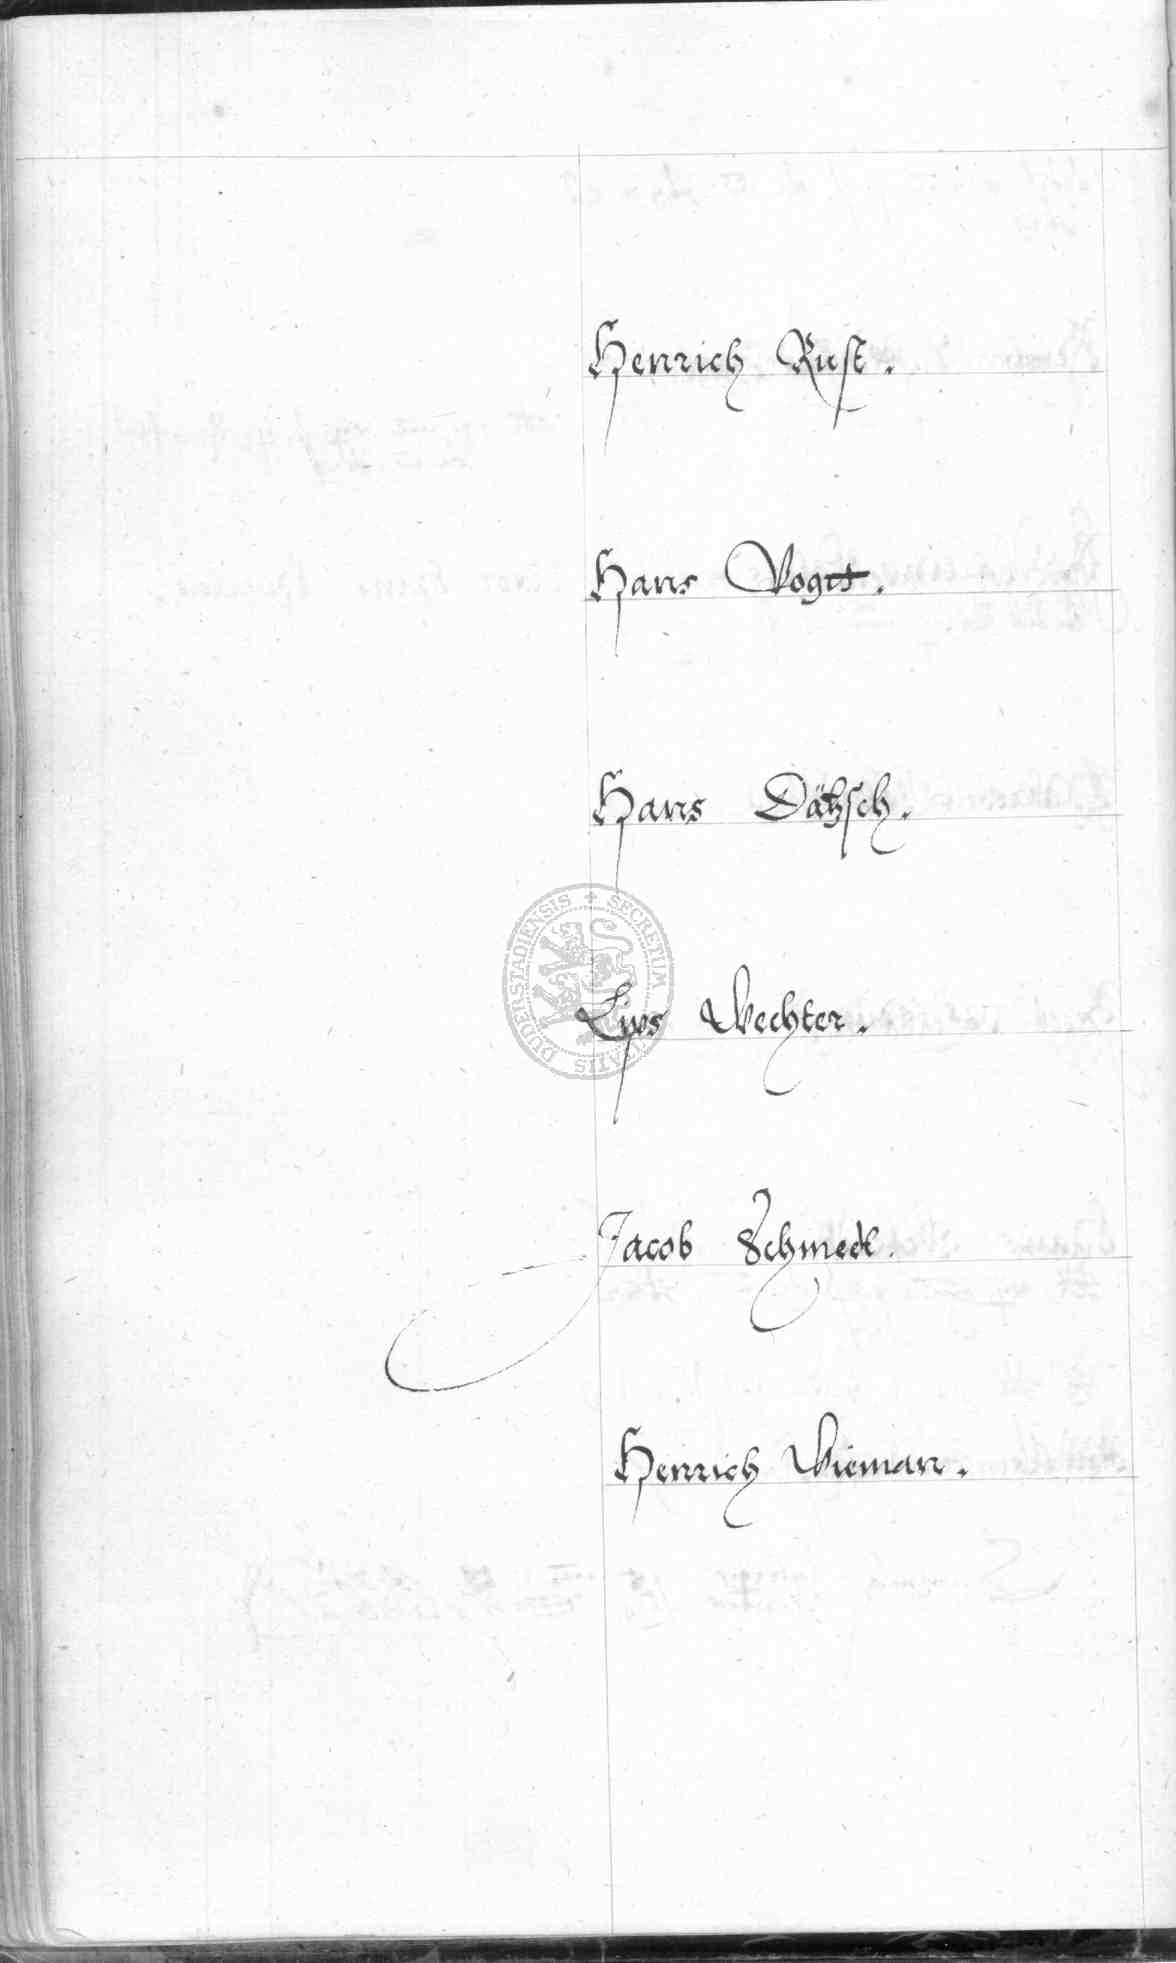 Henrich Rust.
Hans Vogtt.
Hans Dätzsch.
SECRETUM CIVITATIS DUDERSTADIENSIS
Lips Wechter.
Jacob Schmedt.
Henrich Wieman.